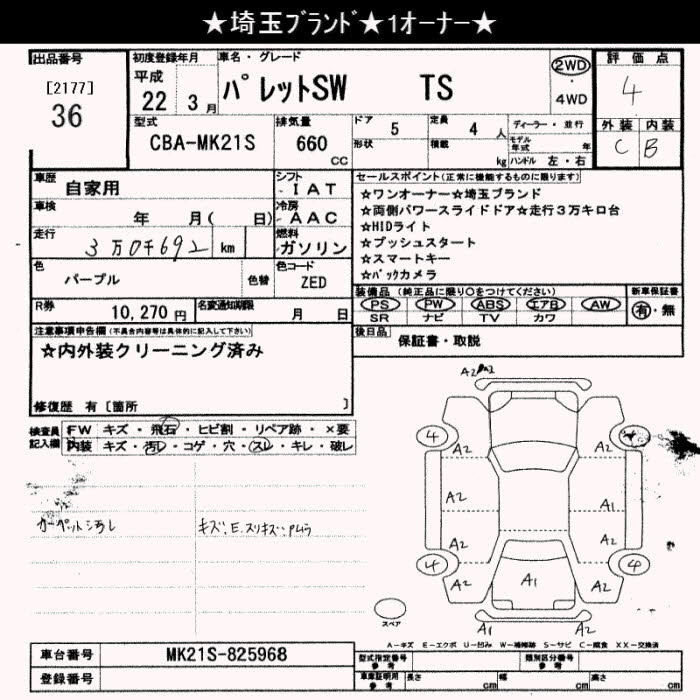 ★埼玉ﾌﾞﾗﾝﾄﾞ★1オーナー★
出品番号
[2177]
36
初度登録年月
平成
22 3月
車名・グレード
パレットSW TS
2WD
・
4WD
評価点
4
外装 内装
C B
型式
CBA-MK21S
排気量
660
CC
ドア
5
形状
定員
4 人
積載
kg
ディーラー・並行
モデル年式
年
ハンドル 左・右
車歴
自家用
シフト
IAT
車検
年 月( 日)
冷房
AAC
走行
3万0千692 km
燃料
ガソリン
色
パープル
色替
色コード
ZED
R券
10,270 円
名変通知期限
月 日
セールスポイント(正常に機能するものに限ります)
☆ワンオーナー☆埼玉ブランド
☆両側パワースライドドア☆走行3万キロ台
☆HIDライト
☆プッシュスタート
☆スマートキー
☆ﾊﾞｯｸカメラ
装備品 (純正品に限り○をつけてください)
PS PW ABS エアB AW
SR ナビ TV カワ
新車保証書
有・無
後日品
保証書・取説
注意事項申告欄(不具合内容等は具体的に記入して下さい)
☆内外装クリーニング済み
修復歴 有〔箇所 〕
検査員記入欄
FW キズ・飛石・ヒビ割・リペア跡・×要
内装 キズ・汚レ・コゲ・穴・スレ・キレ・破レ
カーペット汚レ
キズ、E、スリキズ、Pムラ
A2 A2
4
A2
A2
A1
A2
A2
A2
4
A2
A1
A2
4
A1 A2
スペア
A－キズ E－エクボ U－凹み W－補修跡 S－サビ C－腐食 XX－交換済
車台番号
MK21S-825968
登録番号
型式指定番号
参考
類別区分番号
参考
車庫証明用
参考
長さ cm
幅 cm
高さ cm